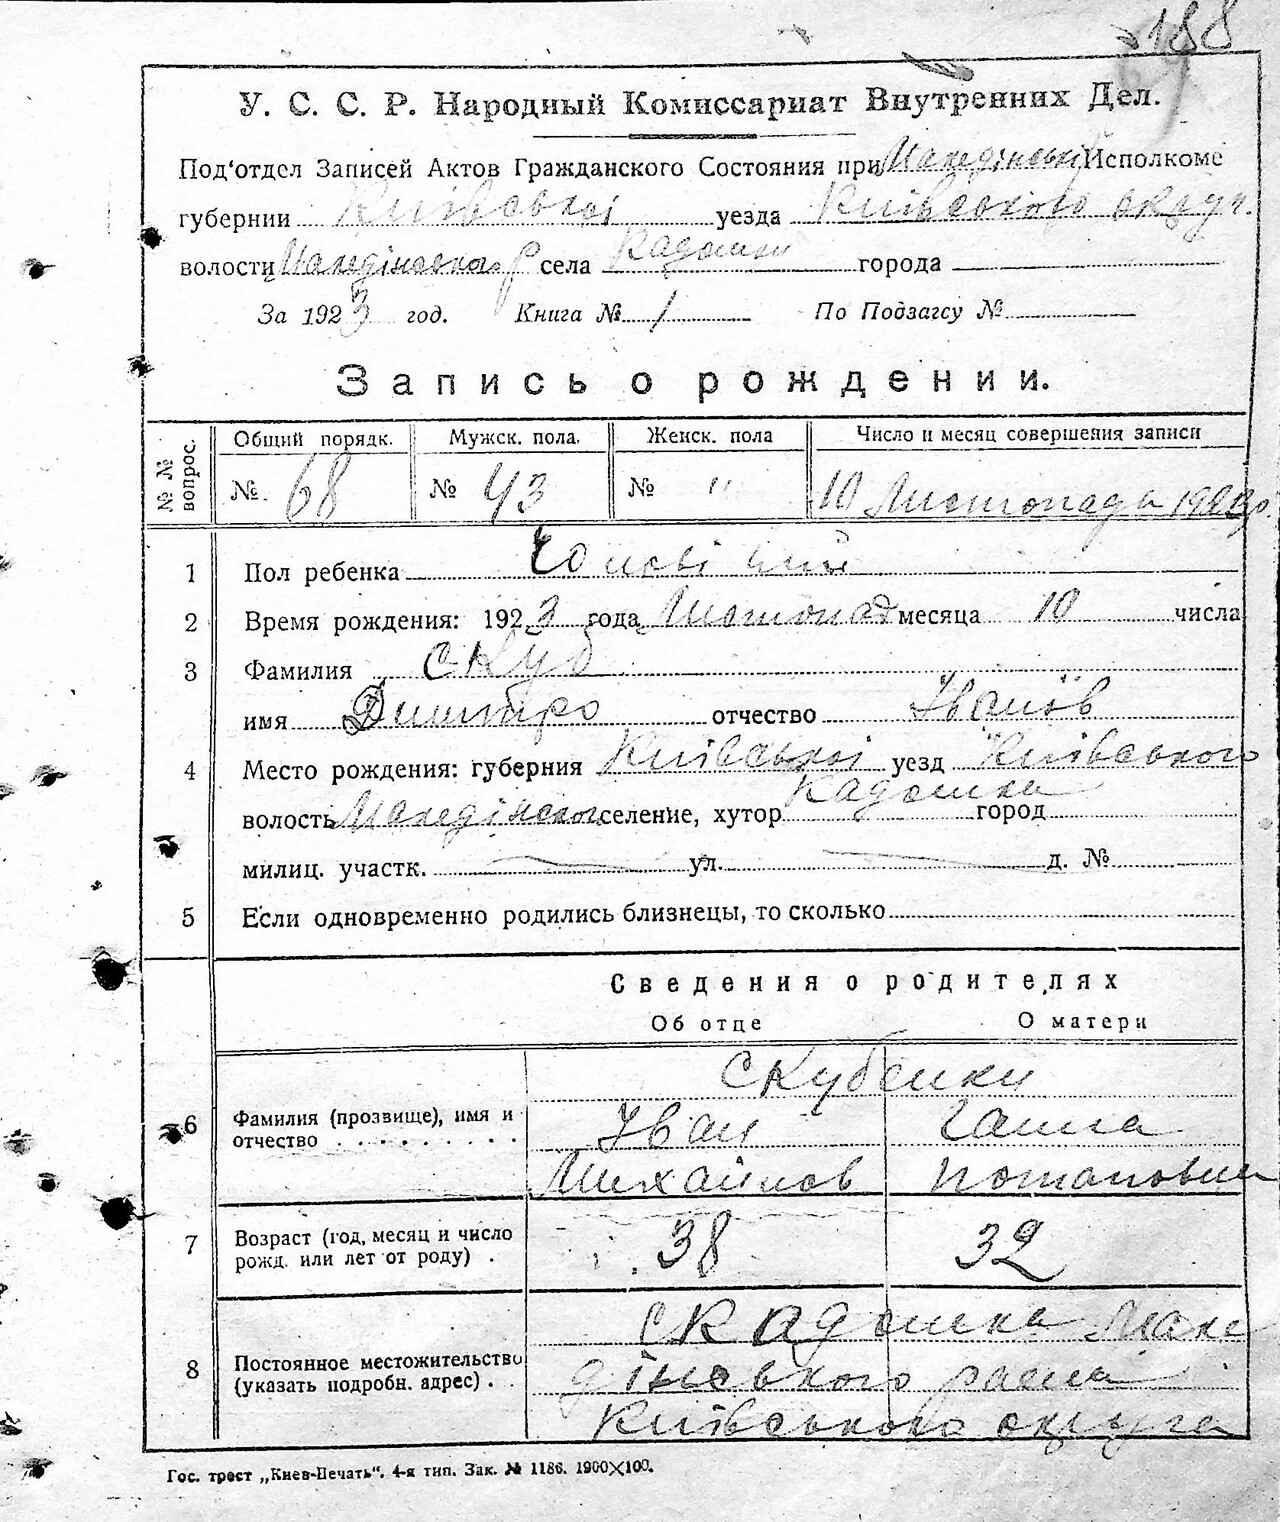 188
У. С. С. Р. Народный Комиссариат Внутренних Дел.
Под'отдел Записей Актов Гражданского Состояния при Македінські Исполкоме
губернии Київської уезда Київського округ.
волости Македінсько р села Кадомка города
За 1923 год. Книга № 1 По Подзагсу №
Запись о рождении.
№ № вопрос. Общий порядк. Мужск. пола. Женск. пола Число и месяц совершения записи
№. 68 № 43 № " 10 Листопада 1923 р.
1 Пол ребенка Чоловічий
2 Время рождения: 1923 года Листопад месяца 10 числа
3 Фамилия Скуб
имя Дмитро отчество Іванов
4 Место рождения: губерния Київської уезд Київського
волость Македінськ селение, хутор Кадомка город
милиц. участк. ул. д. №
5 Если одновременно родились близнецы, то сколько
Сведения о родителях
Об отце О матери
Скубенки
6 Фамилия (прозвище), имя и отчество Іван Ганна
Михайлов Потаповна
7 Возраст (год, месяц и число рожд. или лет от роду) . 38 32
с Кадомка Маке
8 Постоянное местожительство (указать подробн. адрес) . . дінського района
Київського округа
Гос. трест „Киев-Печать". 4-я тип. Зак. № 1186. 1900×100.